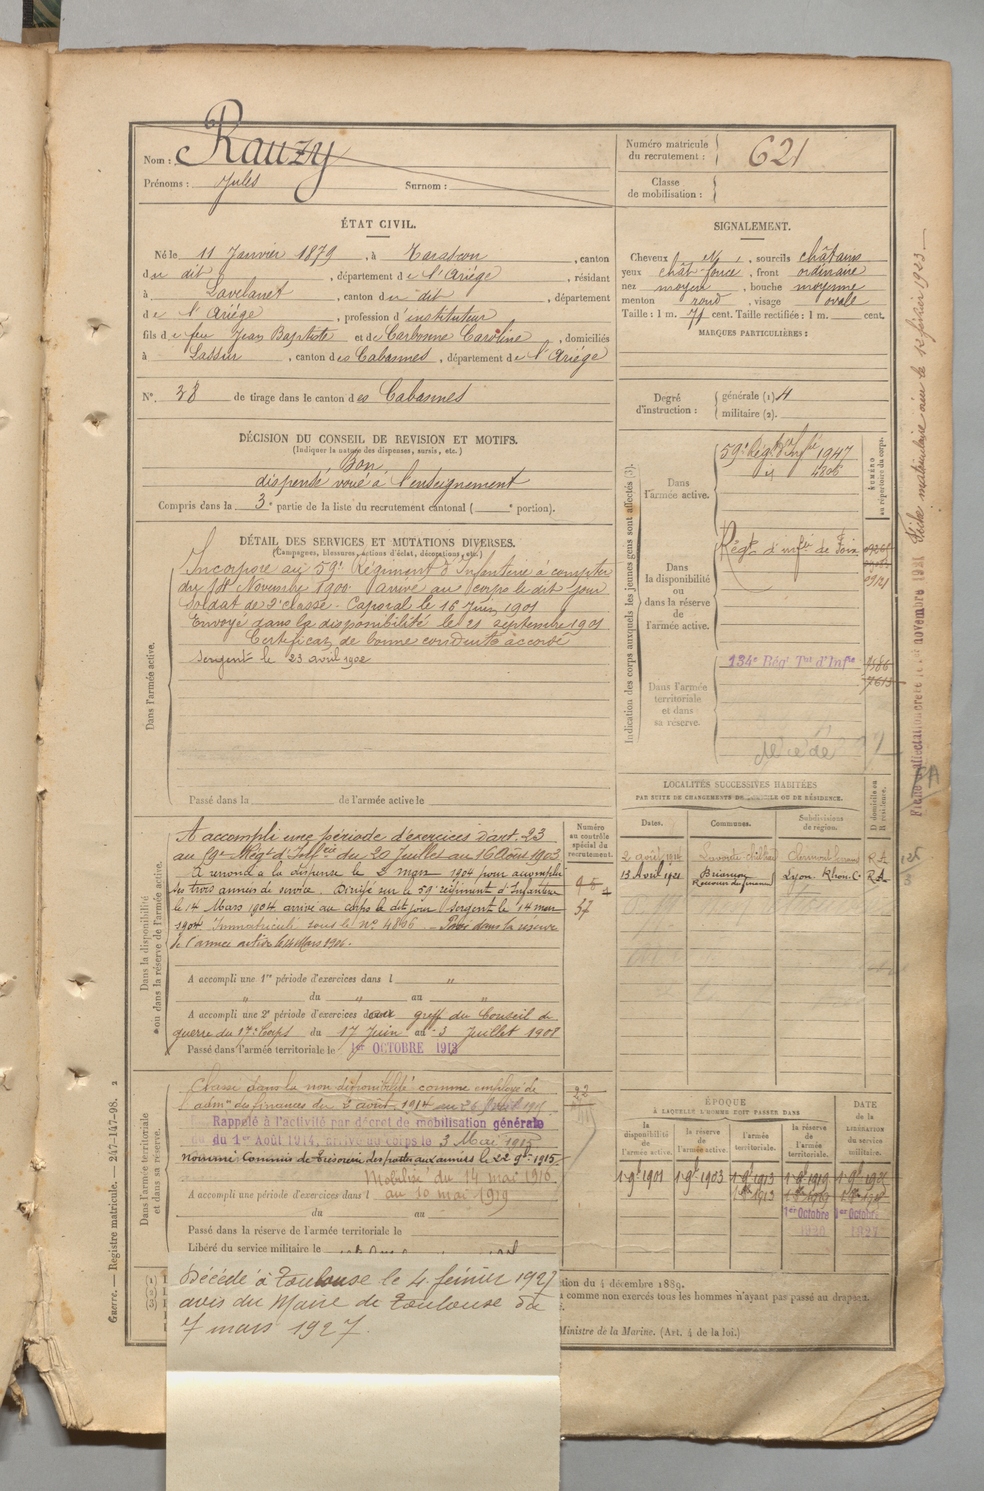 Nom : Rauzy
Prénoms : Jules Surnom :
Numéro matricule du recrutement : 621
Classe de mobilisation :
ÉTAT CIVIL.
Né le 11 Janvier 1879, à Tarascon, canton
du dit, département de l'Ariége, résidant
à Lavelanet, canton du dit, département
de l'Ariége, profession d'instituteur
fils de feu Jean Baptiste et de Carbonne Caroline, domiciliés
à Lassur, canton des Cabannes, département de l'Ariége
N° 38 de tirage dans le canton des Cabannes
SIGNALEMENT.
Cheveux N, sourcils châtains
yeux chât-foncé, front ordinaire
nez moyen, bouche moyenne
menton rond, visage ovale
Taille : 1 m. 71 cent. Taille rectifiée : 1 m. cent.
MARQUES PARTICULIÈRES :
Degré d'instruction : générale (1) 4
militaire (2).
DÉCISION DU CONSEIL DE REVISION ET MOTIFS.
(Indiquer la nature des dispenses, sursis, etc.)
Bon,
dispensé voué à l'enseignement
Compris dans la 3e partie de la liste du recrutement cantonal ( e portion).
DÉTAIL DES SERVICES ET MUTATIONS DIVERSES.
(Campagnes, blessures, actions d'éclat, décorations, etc.)
Dans l'armée active.
Incorporé au 59e Régiment d'Infanterie à compter
du Novembre 1900 arrivé au corps le dit jour
Soldat de 2e classe. Caporal le 16 Juin 1901
Envoyé dans la disponibilité le 21 septembre 1901
Certificat de bonne conduite accordé
Sergent le 23 avril 1902
Passé dans la de l'armée active le
Indication des corps auxquels les jeunes gens sont affectés (3).
NUMÉRO au répertoire du corps.
Dans l'armée active.
59e Régt d'Infie 1947
4806
Dans la disponibilité ou dans la réserve de l'armée active.
Régt d'infie de Foix
Dans l'armée territoriale et dans sa réserve.
134e Régt Tal d'Infie
décédé
LOCALITÉS SUCCESSIVES HABITÉES
PAR SUITE DE CHANGEMENTS DE DOMICILE OU DE RÉSIDENCE.
Dates. Communes. Subdivisions de région. D domicile ou R résidence.
2 avril 1914 Lavoute-Chilhac Clermont R A
13 Avril 1921 Briançon Lyon Rhône R A
Receveur des finances
Dans la disponibilité ou dans la réserve de l'armée active.
Numéro au contrôle spécial du recrutement.
A accompli une période d'exercices d'art. 23
au 59e Régt d'Infie du 20 Juillet au 16 Août 1903
A renoncé à la dispense le 2 mars 1904 pour accomplir
les trois années de service. Dirigé sur le 59e régiment d'Infanterie
le 14 Mars 1904 arrivé au corps le dit jour Sergent le 14 mars
1904 Immatriculé sous le n° 4806 Passé dans la réserve
de l'armée active le
A accompli une 1re période d'exercices dans l „
„ du „ au „
A accompli une 2e période d'exercices dans greff du Conseil de
guerre du 17e Corps du 17 Juin au 3 Juillet 1908
Passé dans l'armée territoriale le 1er OCTOBRE 1913
Dans l'armée territoriale et dans sa réserve.
Classé dans la non disponibilité comme employé de
l'admon des finances du 2 août 1914 au 26
Rappelé à l'activité par décret de mobilisation générale
du 1er Août 1914, arrivé au corps le 3 Mai 1915
nommé Commis de Trésorerie des postes aux armées le 22 9bre 1915.
Mobilisé du 14 mai 1916
A accompli une période d'exercices dans l au 10 mai 1919
du au
Passé dans la réserve de l'armée territoriale le
Libéré du service militaire le
ÉPOQUE
À LAQUELLE L'HOMME DOIT PASSER DANS
la disponibilité de l'armée active. la réserve de l'armée active. l'armée territoriale. la réserve de l'armée territoriale.
DATE de la LIBÉRATION du service militaire.
1 9bre 1901 1 9bre 1903 1 9bre 1913 1 9bre 1919
1er Octobre 1er Octobre
1920 1927
Décédé à Toulouse le 4 février 1927
avis du Maire de Toulouse du
7 mars 1927.
tion du 4 décembre 1889.
comme non exercés tous les hommes n'ayant pas passé au drapeau
Ministre de la Marine. (Art. 4 de la loi.)
Guerre. — Registre matricule. — 247-147-98. 2